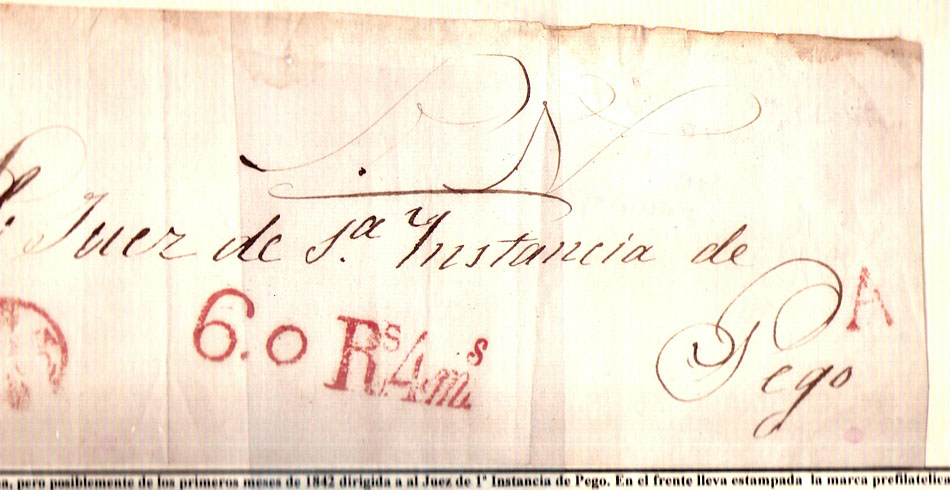 Juez de 1.ª Instancia de
Pego
A
6.0 Rˢ 4 mˢ.
pero posiblemente de los primeros meses de 1842 dirigida a al Juez de 1ª Instancia de Pego. En el frente lleva estampada la marca prefilatelica